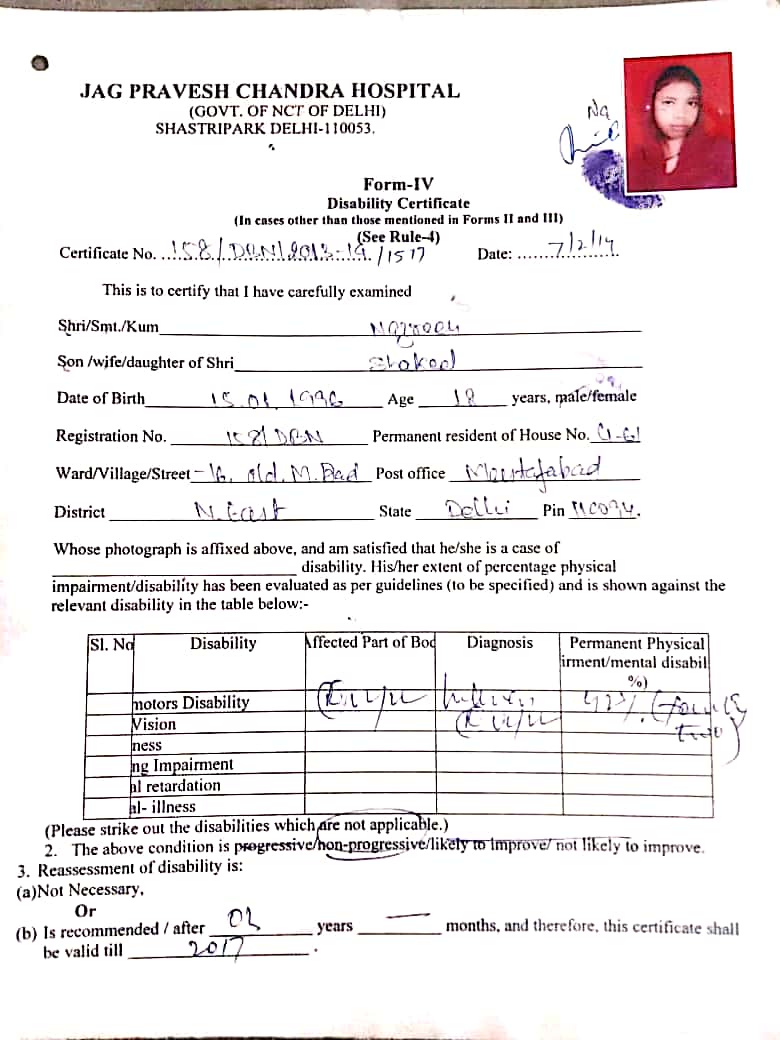 JAG PRAVESH CHANDRA HOSPITAL
(GOVT. OF NCT OF DELHI)
SHASTRIPARK DELHI-110053.
Na
Form-IV
Disability Certificate
(In cases other than those mentioned in Forms II and III)
(See Rule-4)
Certificate No. 158/DBN/2013-14/1517 Date: 7/2/14
This is to certify that I have carefully examined
Shri/Smt./Kum
Son /wife/daughter of Shri
Date of Birth 15.01.1996 Age 18 years, male/female
Registration No. 158/DBN Permanent resident of House No.
Ward/Village/Street - 16, old. M. Bad Post office Mustafabad
District N. East State Delhi Pin
Whose photograph is affixed above, and am satisfied that he/she is a case of
disability. His/her extent of percentage physical
impairment/disability has been evaluated as per guidelines (to be specified) and is shown against the
relevant disability in the table below:-
Sl. No Disability Affected Part of Bod Diagnosis Permanent Physical
irment/mental disabil
%)
motors Disability 42% (forty
Vision two)
ness
ng Impairment
al retardation
al- illness
(Please strike out the disabilities which are not applicable.)
2. The above condition is progressive/non-progressive/likely to improve/ not likely to improve.
3. Reassessment of disability is:
(a)Not Necessary,
Or
(b) Is recommended / after years months, and therefore, this certificate shall
be valid till 2017 .